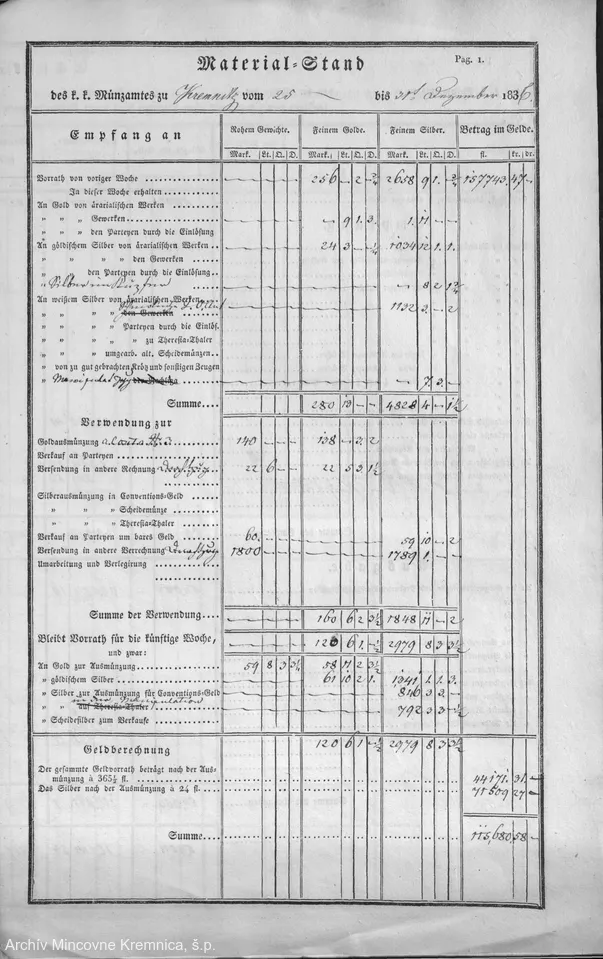 Pag. 1.
Material=Stand
des k. k. Münzamtes zu Kremnitz vom 25 — bis 31t Dezember 1836.
Empfang an | Rohem Gewichte. | Feinem Golde. | Feinem Silber. | Betrag im Gelde.
Mark. Lt. Q. D. | Mark. Lt. Q. D. | Mark. Lt. Q. D. | fl. kr. dr.
Vorrath von voriger Woche 256 — 2 — 2658 9 1. 157743. 47 —
In dieser Woche erhalten
An Gold von ärarialischen Werken
" " " Gewerken — 9 1. 3. 1. 11 — —
" " " den Parteyen durch die Einlösung
An göldischem Silber von ärarialischen Werken 24 3 — 1034 12 1. 1.
" " " " den Gewerken
" " den Parteyen durch die Einlösung
" Silber im — 8 2
An weißem Silber von ärarialischen Werken
" " " " den Gewerken 1132 3. — 2
" " " " Parteyen durch die Einlös.
" " " " " zu Theresia=Thaler
" " " umgearb. alt. Scheidemünzen
" von zu gut gebrachten Kröz und sonstigen Zeugen
" — 7. 3. —
Summe 280 13 — — 4828 4 — 1½
Verwendung zur
Goldausmünzung 140 — — — 138 — 3 2
Verkauf an Parteyen
Versendung in andere Rechnung 22 6 — — 22 5 3 1½
Silberausmünzung in Conventions=Geld
" " " Scheidemünze
" " " Theresia=Thaler
Verkauf an Parteyen um bares Geld 60. — — — 59 10 — 2
Versendung in andere Verrechnung 1800 — — — 1789 1. — —
Umarbeitung und Verlegierung
Summe der Verwendung 160 6 2 3½ 1848 11 — 2
Bleibt Vorrath für die künftige Woche, 120 6 1. — 2979 8 3 3½
und zwar:
An Gold zur Ausmünzung 59 8 3 58 11 2
" göldischem Silber 61 10 2 1. 1341 1. 1. 3.
" Silber zur Ausmünzung für Conventions=Geld 846 3 3. —
in der Manipulation
" " auf Theresia=Thaler 792 3 3
" Scheidesilber zum Verkaufe
120 6 1 2979 8 3 3½
Geldberechnung
Der gesammte Geldvorrath beträgt nach der Aus=
münzung à 365½ fl. 44171. 31. —
Das Silber nach der Ausmünzung à 24 fl. 71509 27 —
Summe 115,680 58 —
Archív Mincovne Kremnica, š.p.